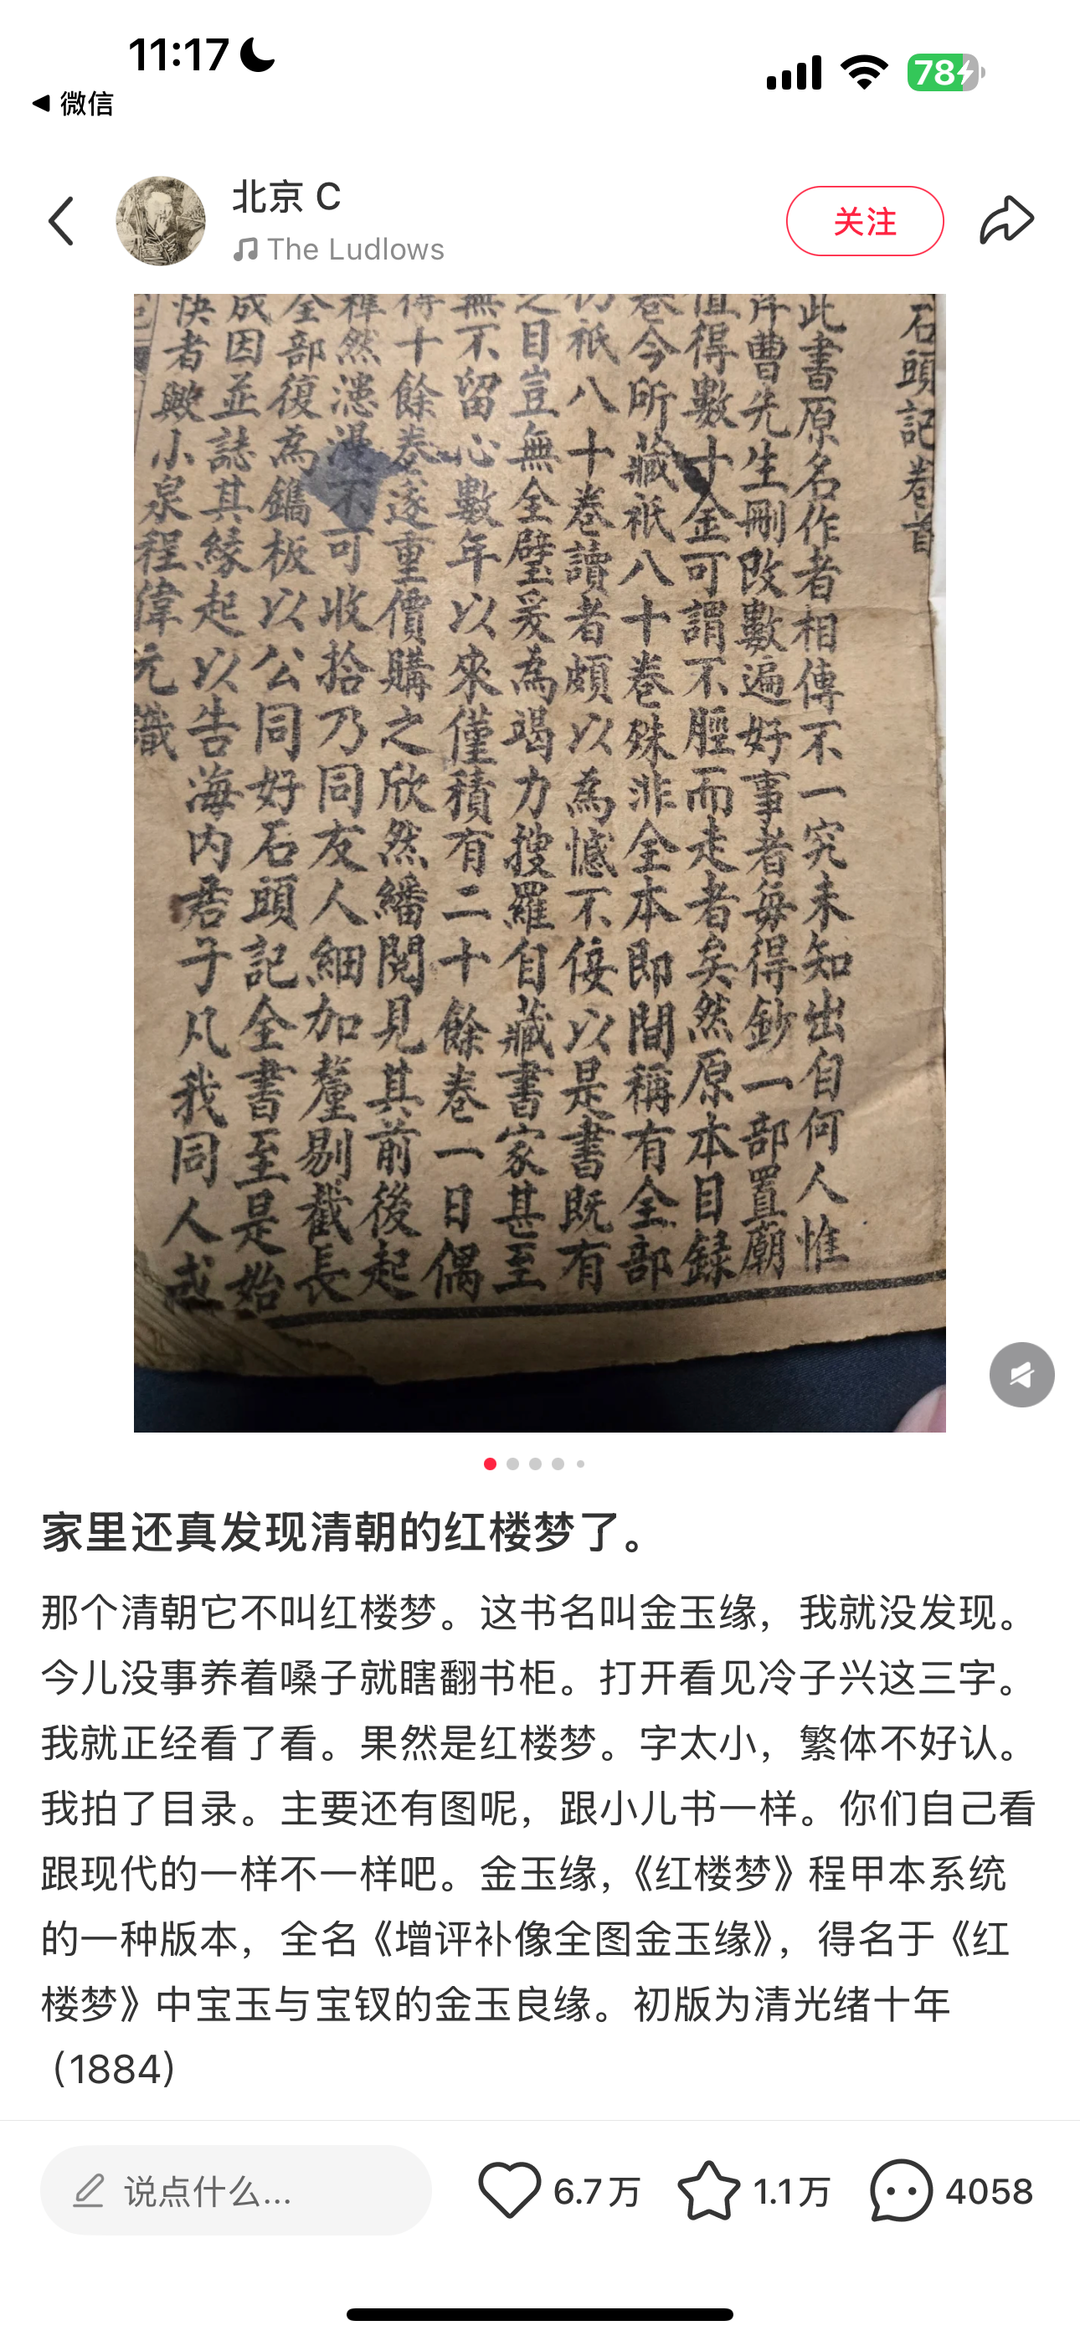 11:17
微信
78
北京 C
The Ludlows
关注
石頭記卷首
此書原名作者相傳不一究未知出自何人惟
芹曹先生刪改數遍好事者每得鈔一部置廟
值得數十金可謂不脛而走者矣然原本目錄
卷今所藏祇八十卷殊非全本即間稱有全部
仍祇八十卷讀者頗以為憾不佞以是書既有
之目豈無全璧爰為竭力搜羅自藏書家甚至
無不留心數年以來僅積有二十餘卷一日偶
得十餘卷遂重價購之欣然繙閱見其前後起
榫然漶漫不可收拾乃同友人細加釐剔截長
全部復為鐫板以公同好石頭記全書至是始
成因並誌其緣起以告海內君子凡我同人或
快者歟小泉程偉元識
家里还真发现清朝的红楼梦了。
那个清朝它不叫红楼梦。这书名叫金玉缘，我就没发现。
今儿没事养着嗓子就瞎翻书柜。打开看见冷子兴这三字。
我就正经看了看。果然是红楼梦。字太小，繁体不好认。
我拍了目录。主要还有图呢，跟小儿书一样。你们自己看
跟现代的一样不一样吧。金玉缘，《红楼梦》程甲本系统
的一种版本，全名《增评补像全图金玉缘》，得名于《红
楼梦》中宝玉与宝钗的金玉良缘。初版为清光绪十年
（1884）
说点什么...
6.7万
1.1万
4058